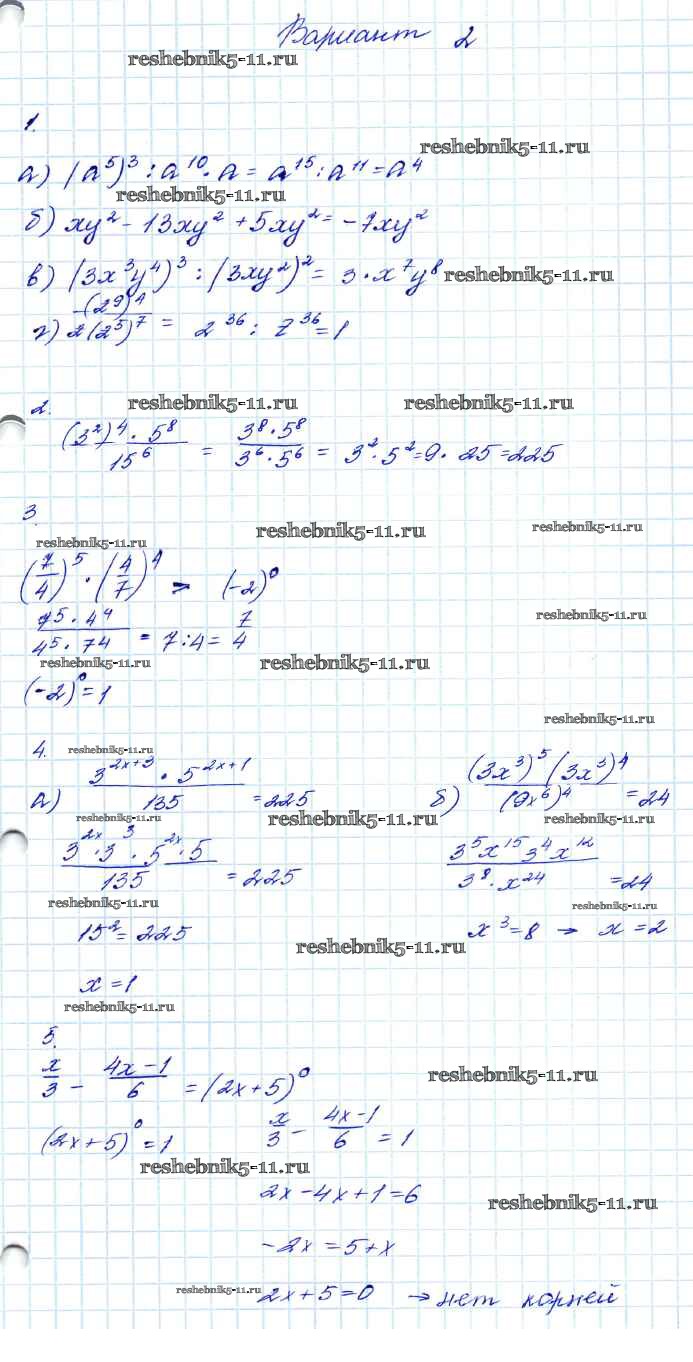 Вариант 2
reshebnik5-11.ru
1.
reshebnik5-11.ru
а) (a⁵)³ : a¹⁰ · a = a¹⁵ : a¹¹ = a⁴
reshebnik5-11.ru
б) xy² - 13xy² + 5xy² = -7xy²
в) (3x³y⁴)³ : (3xy²)² = 3 · x⁷y⁸
reshebnik5-11.ru
г) -(2⁹)⁴ / 2(2⁵)⁷ = 2³⁶ : 2³⁶ = 1
reshebnik5-11.ru reshebnik5-11.ru
2.
(3²)⁴ · 5⁸ / 15⁶ = 3⁸ · 5⁸ / 3⁶ · 5⁶ = 3² · 5² = 9 · 25 = 225
3.
reshebnik5-11.ru reshebnik5-11.ru reshebnik5-11.ru
(7/4)⁵ · (4/7)⁴ > (-2)⁰
reshebnik5-11.ru
7⁵ · 4⁴ / 4⁵ · 7⁴ = 7 : 4 = 7/4
reshebnik5-11.ru reshebnik5-11.ru
(-2)⁰ = 1
reshebnik5-11.ru
4. reshebnik5-11.ru
а) 3²ˣ⁺³ · 5²ˣ⁺¹ / 135 = 225 б) (3x³)⁵ (3x³)⁴ / (9x⁶)⁴ = 24
reshebnik5-11.ru reshebnik5-11.ru reshebnik5-11.ru
3²ˣ · 3³ · 5²ˣ · 5 / 135 = 225 3⁵x¹⁵3⁴x¹² / 3⁸ · x²⁴ = 24
reshebnik5-11.ru reshebnik5-11.ru
15² = 225 x³ = 8 → x = 2
reshebnik5-11.ru
x = 1
reshebnik5-11.ru
5.
x/3 - 4x-1/6 = (2x+5)⁰
reshebnik5-11.ru
(2x+5)⁰ = 1 x/3 - 4x-1/6 = 1
reshebnik5-11.ru
2x-4x+1=6
reshebnik5-11.ru
-2x = 5+x
reshebnik5-11.ru
2x+5=0 → нет корней